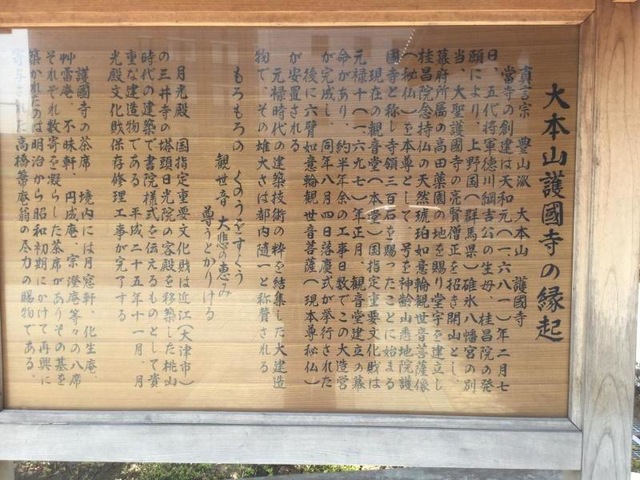 大本山護國寺の縁起
真言宗 豊山派 大本山 護國寺
當寺の創建は天和元(一六八一)年二月七
日、五代将軍徳川綱吉公の生母、桂昌院の発
願により、上野国(群馬県)碓氷八幡宮の別
当、大聖護國寺の亮賢僧正を招き開山とし、
幕府所属の高田薬園の地を賜り堂宇を建立し
桂昌院念持仏の天然琥珀如意輪観世音菩薩像
(秘仏)を本尊として、号を神齢山悉地院護
國寺と称し寺領三百石を賜ったことに始まる
現在の観音堂(本堂)国指定重要文化財は
元禄十(一六九七)年正月、観音堂建立の幕
命があり、約半年余の工事日数でこの大造営
が完成し、同年八月四日落慶式が挙行された
後に六臂如意輪観世音菩薩(現本尊秘仏)
が安置される
元禄時代の建築技術の粋を結集した大建造
物で、その雄大さは都内随一と称賛される
もろもろの くのうをすくう
観世音 大悲の恵み
尊うとかりける
月光殿 国指定重要文化財は近江(大津市)
の三井寺の塔頭日光院の客殿を移築した桃山
時代の建築で書院様式を伝えるものとして貴
重な建造物である 平成二十五年十一月 月
光殿文化財保存修理工事が完了する
護國寺の茶席 境内には月窓軒、化生庵、
艸雷庵、不昧軒、円成庵、宗澄庵等々の八席
それぞれ数寄を凝らした茶席がありその基を
築かれたのは明治から昭和初期にかけて再興に
寄与された高橋箒庵翁の尽力の賜物である。